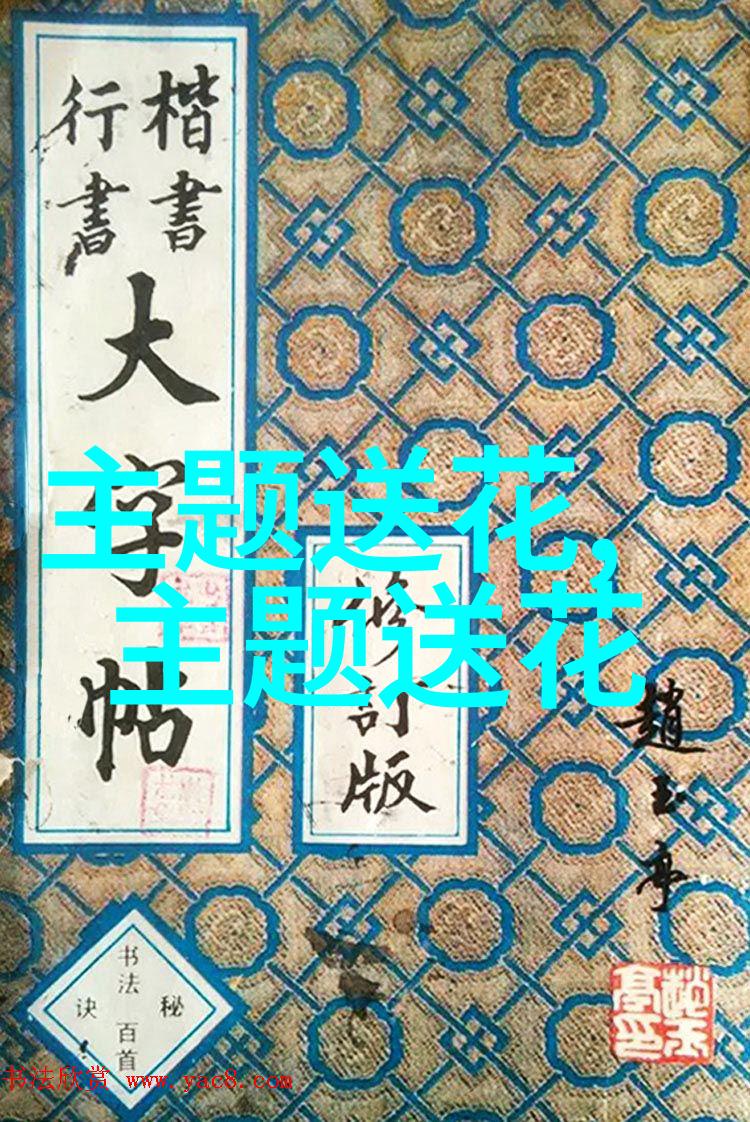 楷書
行書
大字帖
主题送花,
主题送花
修訂版
趙玉亭
书法百首
秘诀
书法欣赏 www.yac8.com